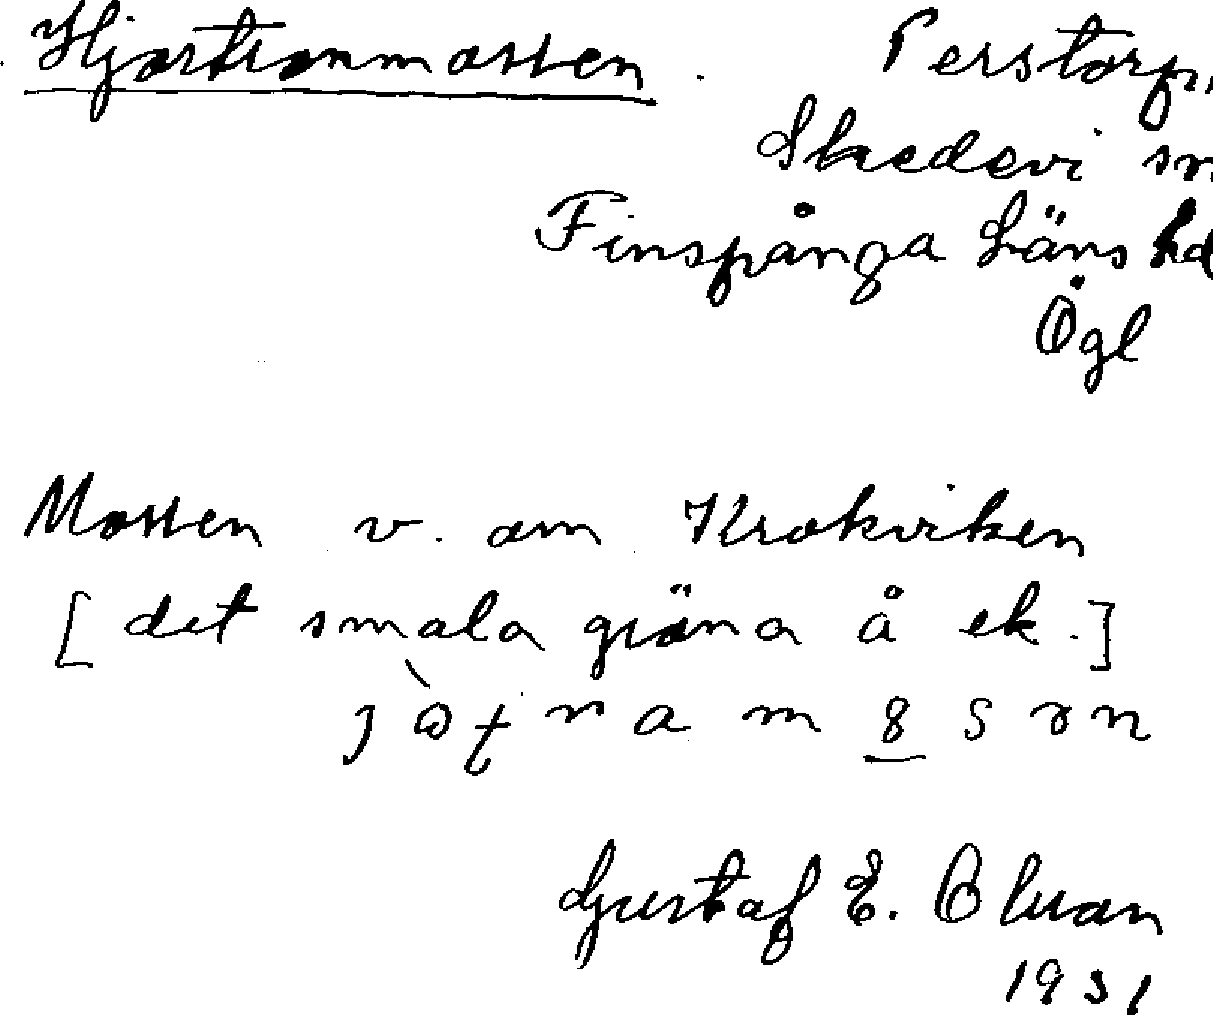 Hjortranmossen. Perstorp,
Skedevi sn
Finspånga Läns hd
Ögl
Mossen v. om Krokviken
[det smala gröna å ek.]
Gustaf E. Olsson
1931